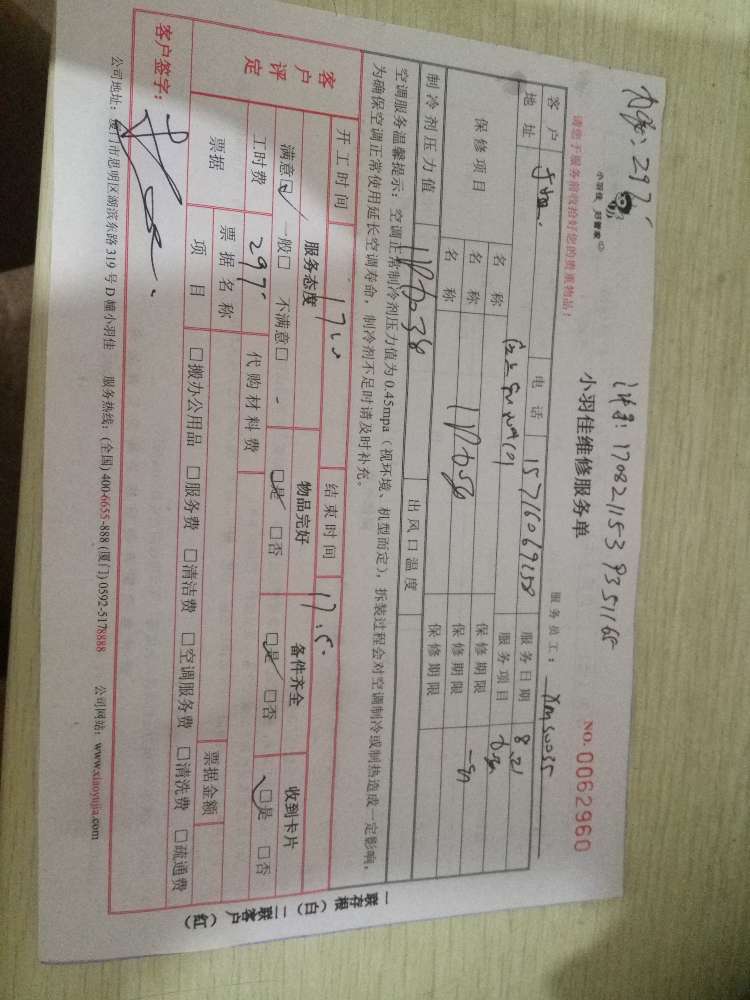 小羽佳 好管家
请您于服务前收捡好您的贵重物品！
小羽佳维修服务单
NO. 0062960
服务员工：
客户 电话 服务日期 8.21
地址 服务项目
保修项目 名称 保修期限
名称 保修期限
名称 保修期限
制冷剂压力值 出风口温度
空调服务温馨提示：空调正常制冷剂压力值为 0.45mpa（视环境、机型而定），拆装过程会对空调制冷或制热造成一定影响，
为确保空调正常使用延长空调寿命，制冷剂不足时请及时补充。
开工时间 结束时间
客户评定 服务态度 物品完好 备件齐全 收到卡片
满意☑ 一般□ 不满意□ □是 □否 □是 □否 □是 □否
工时费 297 代购材料费
票据 票据名称 票据金额
项目 □搬办公用品 □服务费 □清洁费 □空调服务费 □清洗费 □疏通费
客户签字：
公司地址：厦门市思明区湖滨东路 319 号 D 幢小羽佳 服务热线：(全国) 400-6655-888 (厦门) 0592-5178888 公司网站：www.xiaoyujia.com
一联存根（白）二联客户（红）